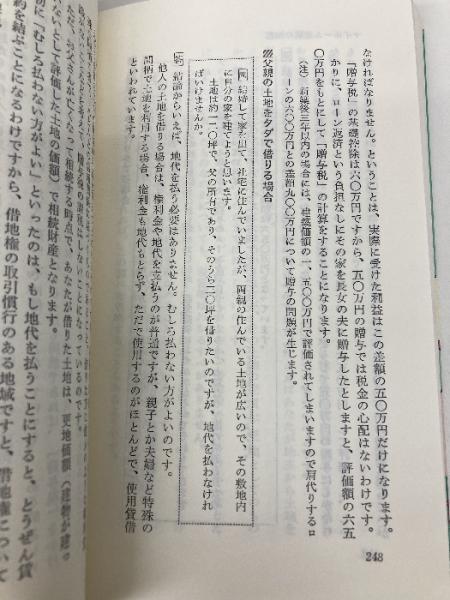 なければなりません。ということは、実際に受けた利益はこの差額の五〇万円だけになります。
「贈与税」の基礎控除は六〇万円ですから、五〇万円の贈与では税金の心配はないわけです。
かりに、ローン返済という負担なしにその家を長女の夫に贈与したとしますと、評価額の六五
〇万円をもとにして「贈与税」の計算をすることになります。
(注) 新築後三年以内の場合には、建築価額の一、五〇〇万円で評価されてしまいますので肩代りするロ
ーンの六〇〇万円との差額九〇〇万円について贈与の問題が生じます。
父親の土地をタダで借りる場合
問 結婚して家を出て、社宅に住んでいましたが、両親の住んでいる土地が広いので、その敷地内
に自分の家を建てようと思います。
土地は約一一〇坪で、父の所有であり、そのうち二〇坪を借りたいのですが、地代を払わなけれ
ばいけませんか。
答 結論からいえば、地代を払う必要はありません。むしろ払わない方がよいのです。
他人の土地を借りる場合は、権利金や地代を支払うのが普通ですが、親子とか夫婦など特殊の
間柄で土地を利用する場合、権利金も地代もとらず、ただで使用するのがほとんどで、使用貸借
といわれています。
248
ただ、お父さんが亡くなって相続する時点で、あなたが借りた土地は、更地価額(建物が建
ないとして評価した土地の価額)で相続財産となります。
初に「むしろ払わない方がよい」といったのは、もし地代を払うことにすると、とうぜん賃
約を結ぶことになるわけですから、借地権の取引慣行のある地域ですと、借地権について